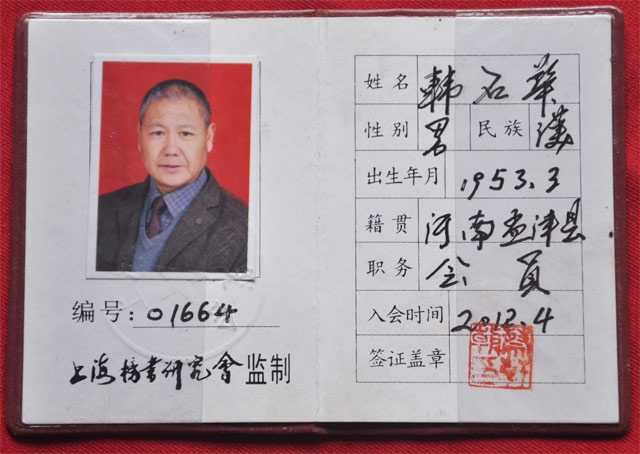 编号: 01664
上海榜书研究會监制
姓名 韩石华
性别 男 民族 汉
出生年月 1953.3
籍贯 河南孟津县
职务 会员
入会时间 2012.4
签证盖章